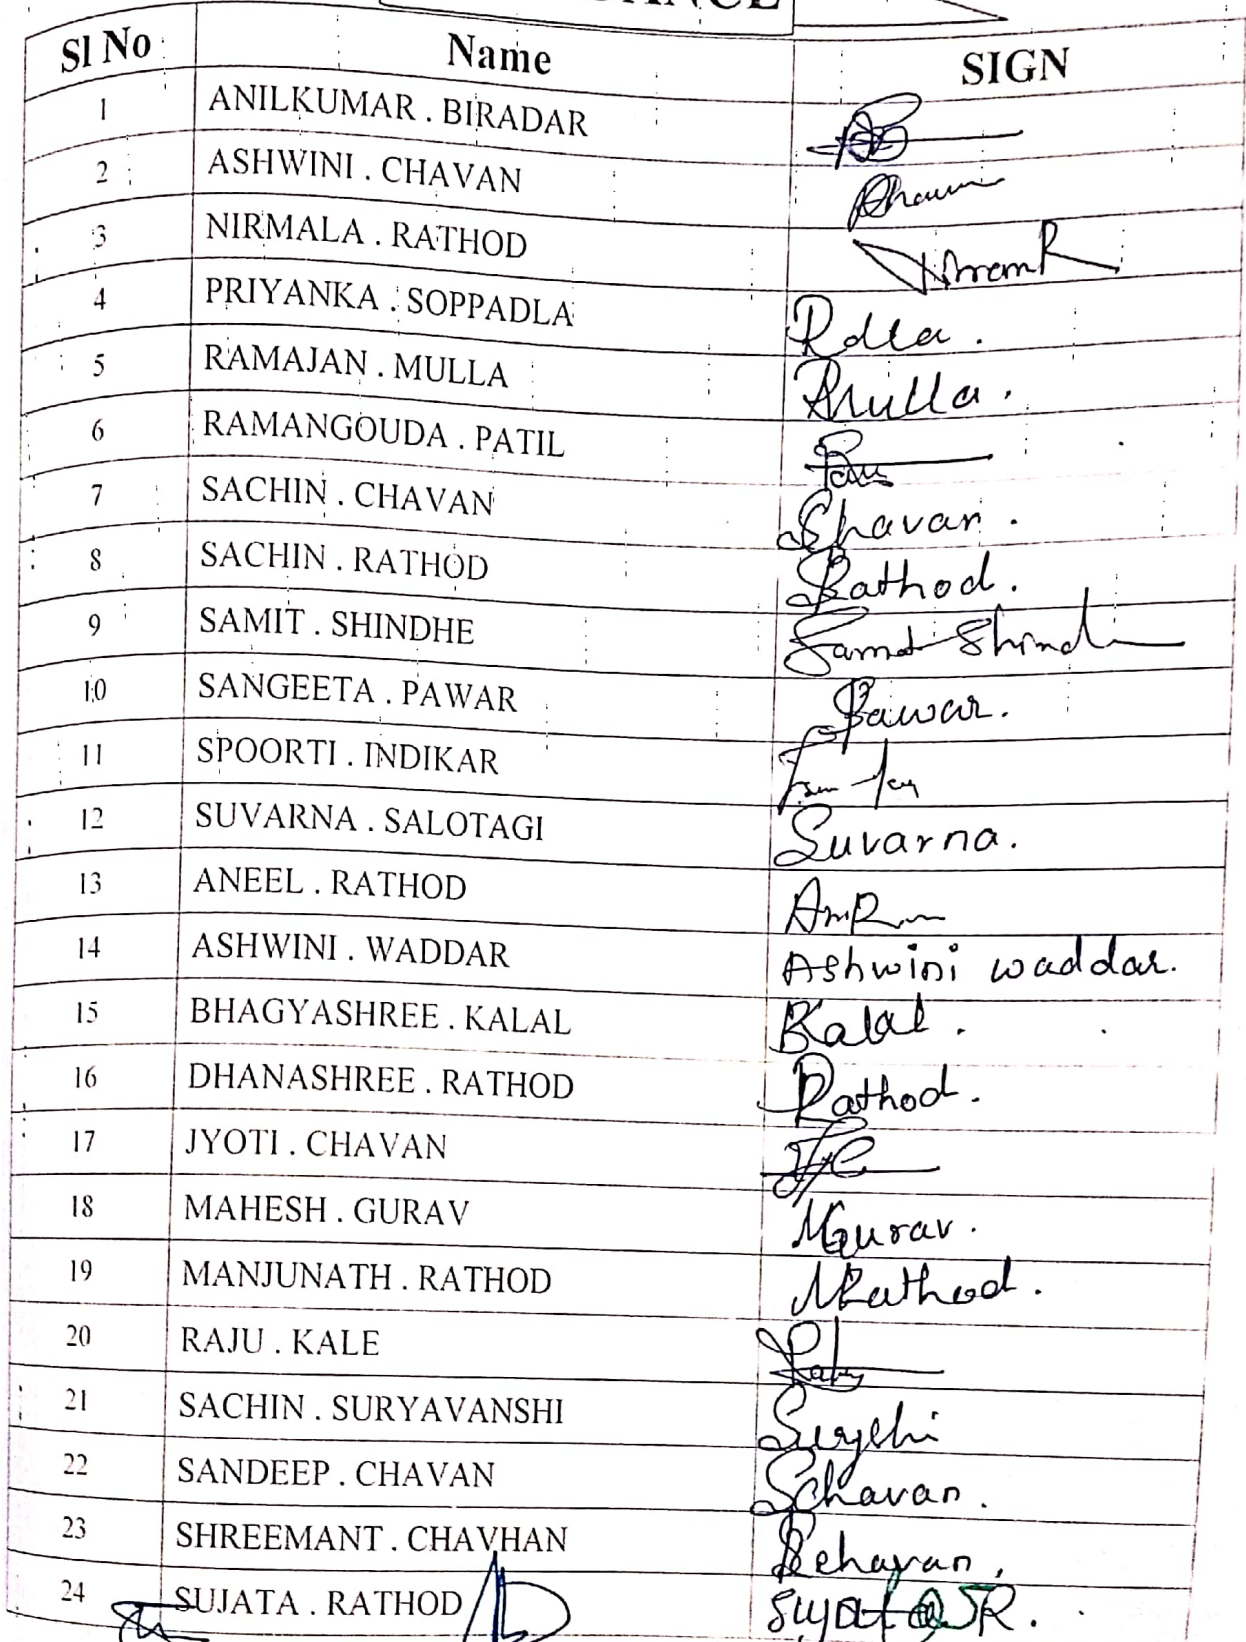 Sl No Name SIGN
1 ANILKUMAR . BIRADAR
2 ASHWINI . CHAVAN
3 NIRMALA . RATHOD
4 PRIYANKA . SOPPADLA
5 RAMAJAN . MULLA Rmulla.
6 RAMANGOUDA . PATIL
7 SACHIN . CHAVAN Shavan.
8 SACHIN . RATHOD Rathod.
9 SAMIT . SHINDHE
10 SANGEETA . PAWAR Pawar.
11 SPOORTI . INDIKAR
12 SUVARNA . SALOTAGI Suvarna.
13 ANEEL . RATHOD
14 ASHWINI . WADDAR Ashwini waddar.
15 BHAGYASHREE . KALAL Kalal.
16 DHANASHREE . RATHOD Rathod.
17 JYOTI . CHAVAN
18 MAHESH . GURAV MGurav.
19 MANJUNATH . RATHOD MRathod.
20 RAJU . KALE
21 SACHIN . SURYAVANSHI
22 SANDEEP . CHAVAN Schavan.
23 SHREEMANT . CHAVHAN
24 SUJATA . RATHOD